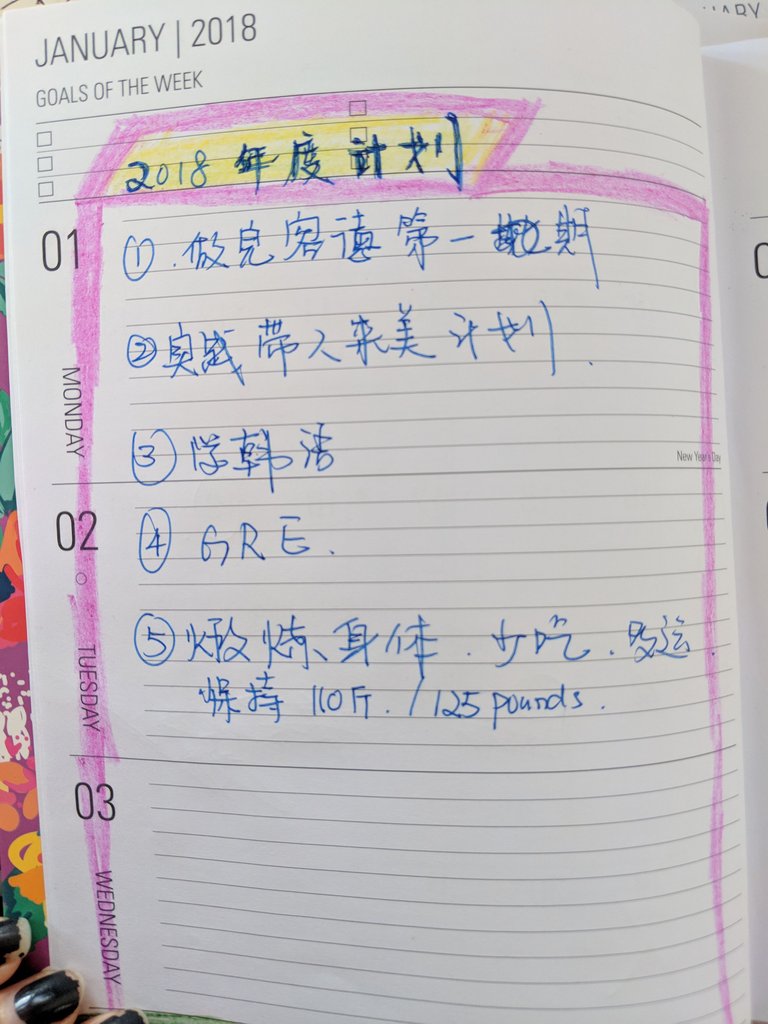 JANUARY | 2018
GOALS OF THE WEEK
2018 年度计划
01
① 做完 第一 期
② 实践带人来美计划.
MONDAY
③ 学韩语
New Year's Day
02
④ GRE.
TUESDAY
⑤ 锻炼身体. 少吃.
保持 110斤. / 125 pounds.
03
WEDNESDAY